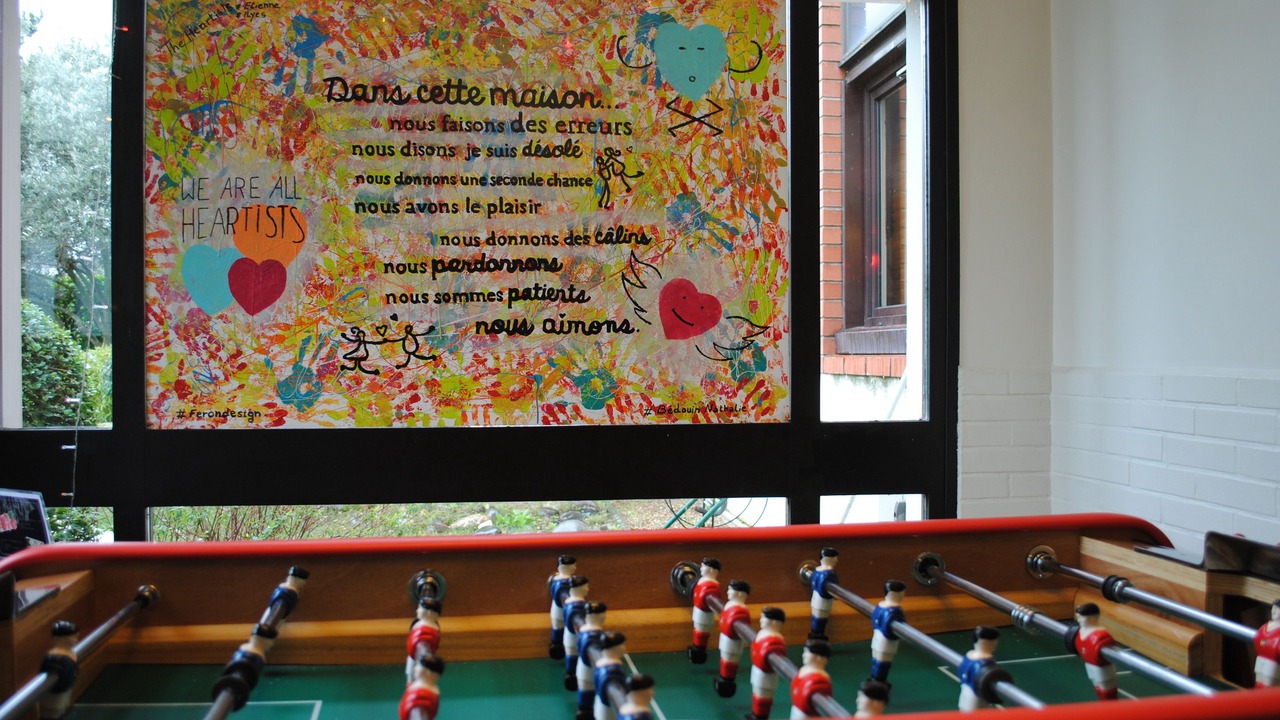 The Heartists
# Etienne
# Ilyes
Dans cette maison...
nous faisons des erreurs
nous disons je suis désolé
nous donnons une seconde chance
nous avons le plaisir
nous donnons des câlins
nous pardonnons
nous sommes patients
nous aimons.
WE ARE ALL
HEARTISTS
# Ferondesign
# Bédouin Nathalie